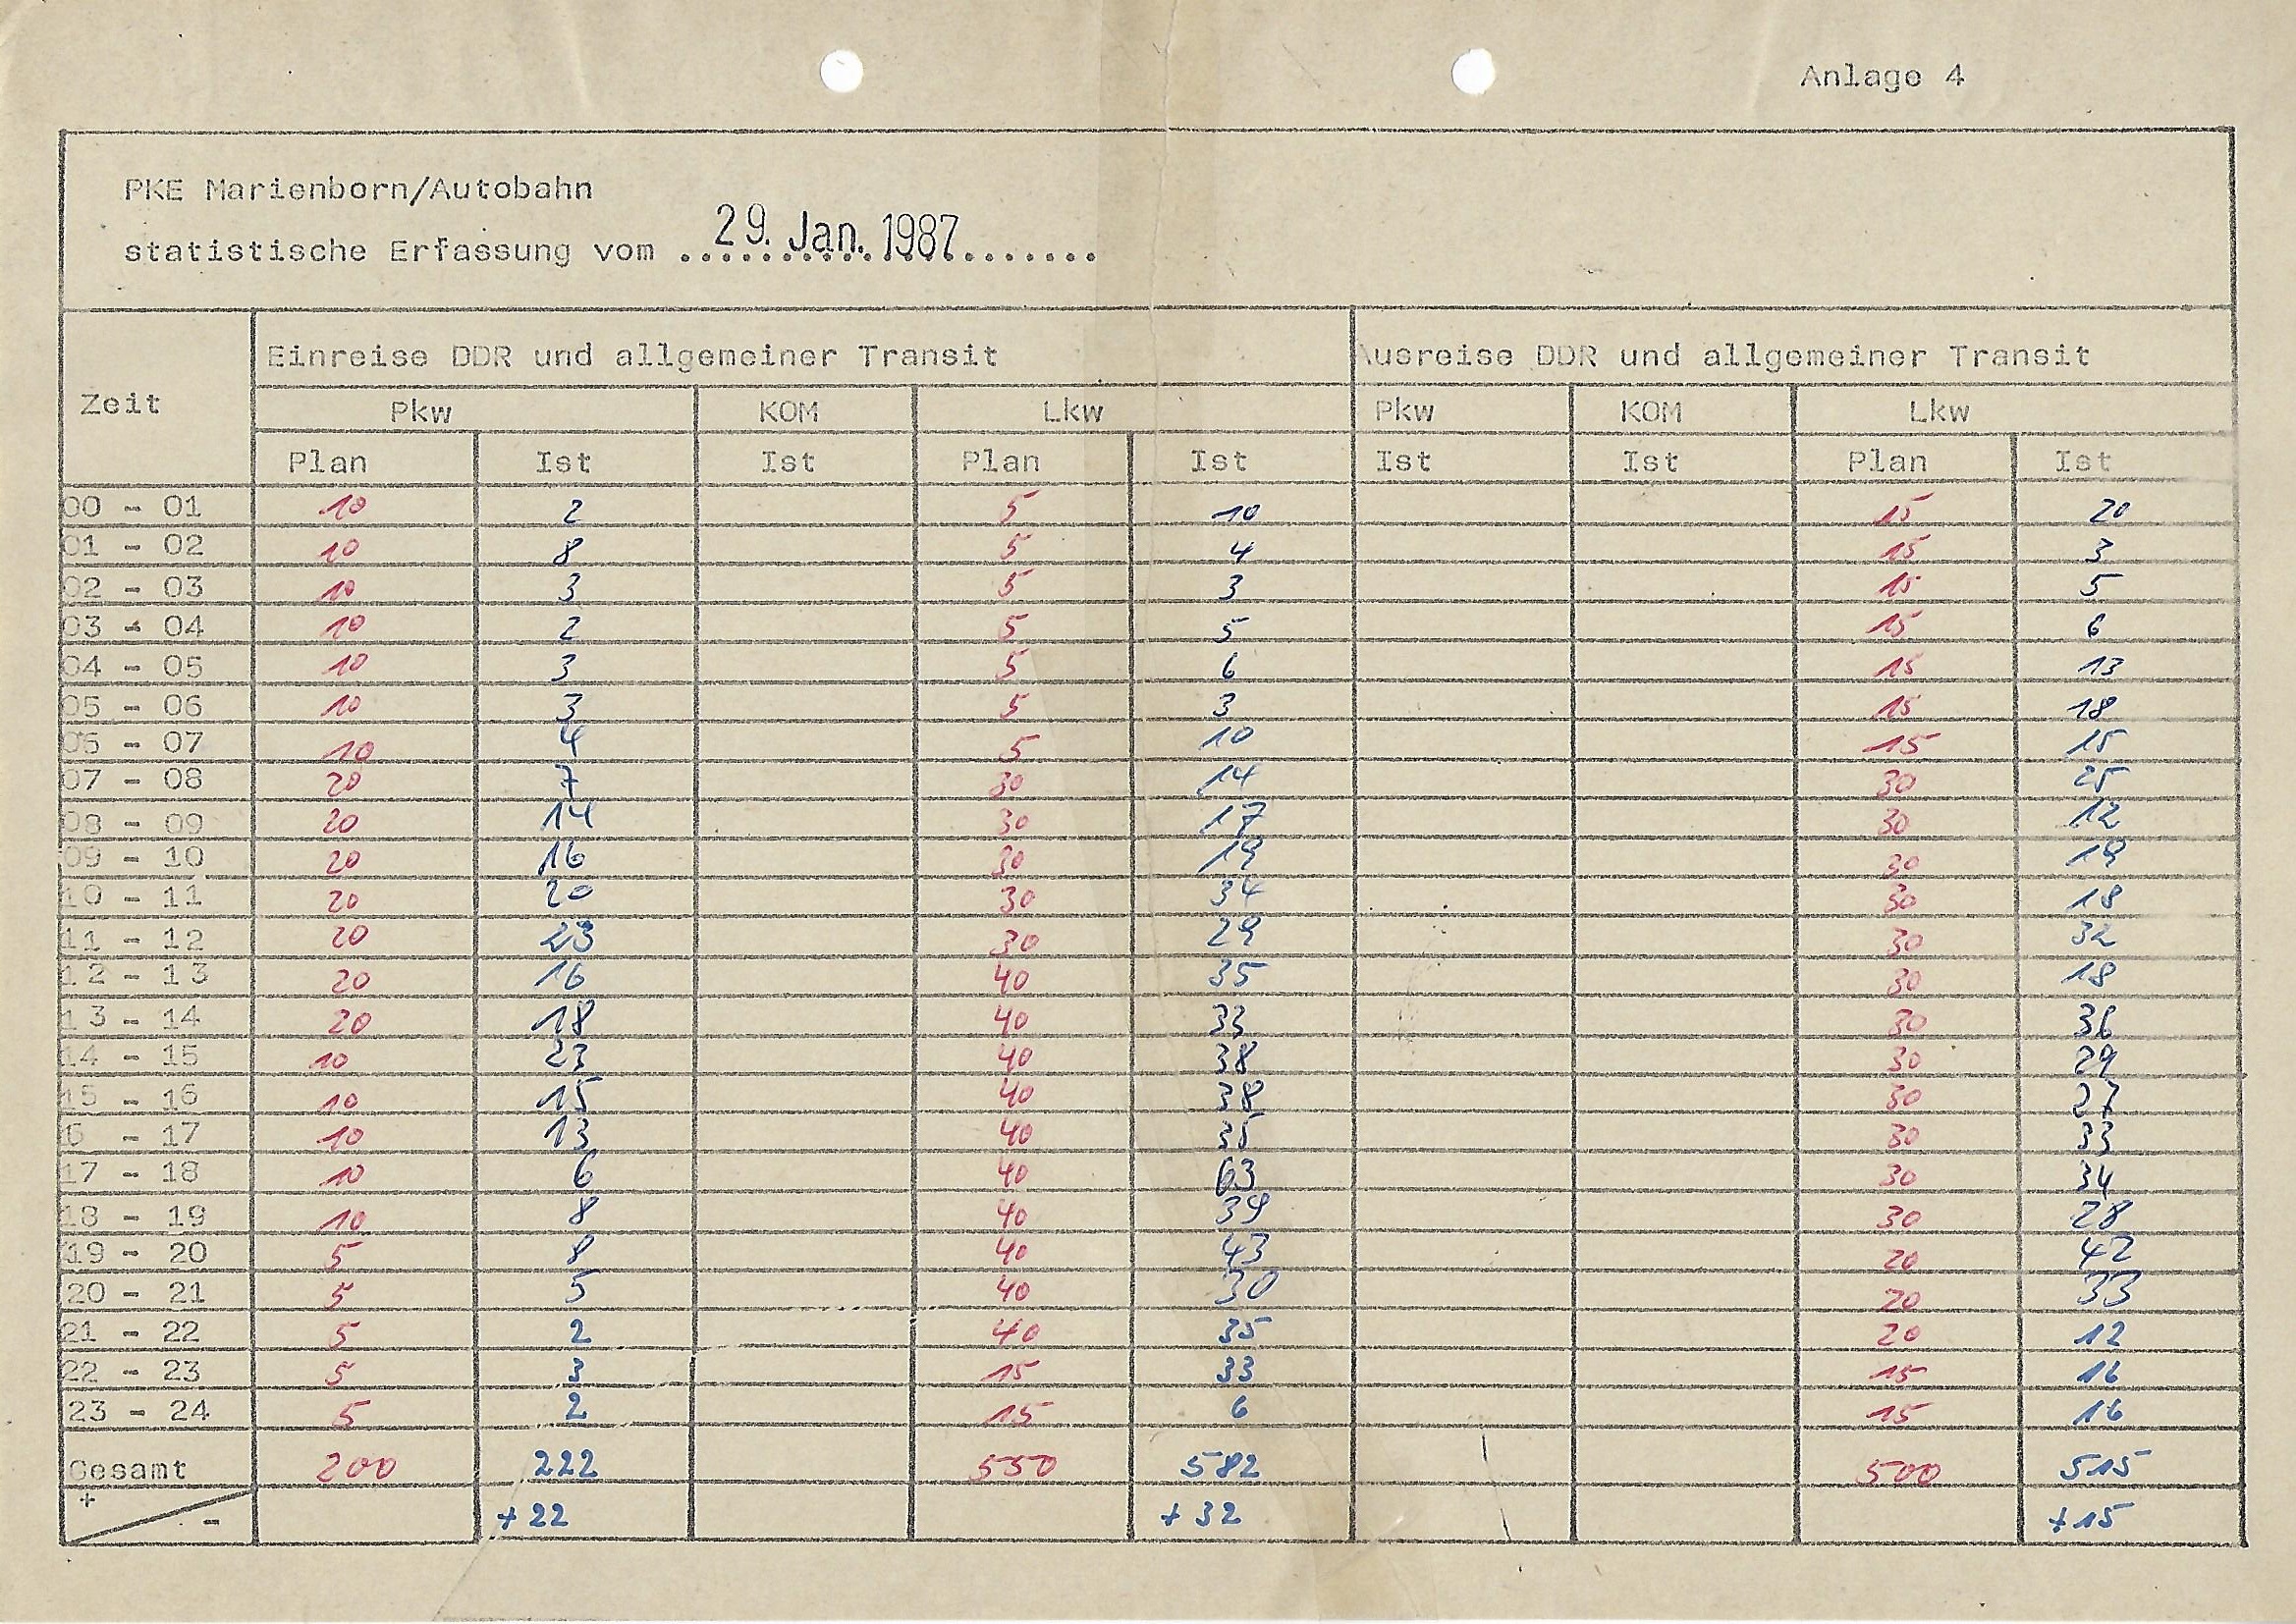 Anlage 4
PKE Marienborn/Autobahn
statistische Erfassung vom ...29. Jan. 1987.......
Zeit
Einreise DDR und allgemeiner Transit
Ausreise DDR und allgemeiner Transit
Pkw KOM Lkw Pkw KOM Lkw
Plan Ist Ist Plan Ist Ist Ist Plan Ist
00 - 01 10 2 5 10 15 20
01 - 02 10 8 5 4 15 3
02 - 03 10 3 5 3 15 5
03 - 04 10 2 5 5 15 6
04 - 05 10 3 5 6 15 13
05 - 06 10 3 5 3 15 18
06 - 07 10 4 5 10 15 15
07 - 08 20 7 30 14 30 25
08 - 09 20 14 30 17 30 12
09 - 10 20 16 30 19 30 19
10 - 11 20 20 30 34 30 18
11 - 12 20 23 30 29 30 32
12 - 13 20 16 40 35 30 18
13 - 14 20 18 40 33 30 36
14 - 15 10 23 40 38 30 29
15 - 16 10 15 40 38 30 27
6 - 17 10 13 40 35 30 33
17 - 18 10 6 40 63 30 34
18 - 19 10 8 40 39 30 28
19 - 20 5 8 40 43 20 42
20 - 21 5 5 40 30 20 33
21 - 22 5 2 40 35 20 12
22 - 23 5 3 15 33 15 16
23 - 24 5 2 15 6 15 16
Gesamt 200 222 550 582 500 515
+ - +22 +32 +15